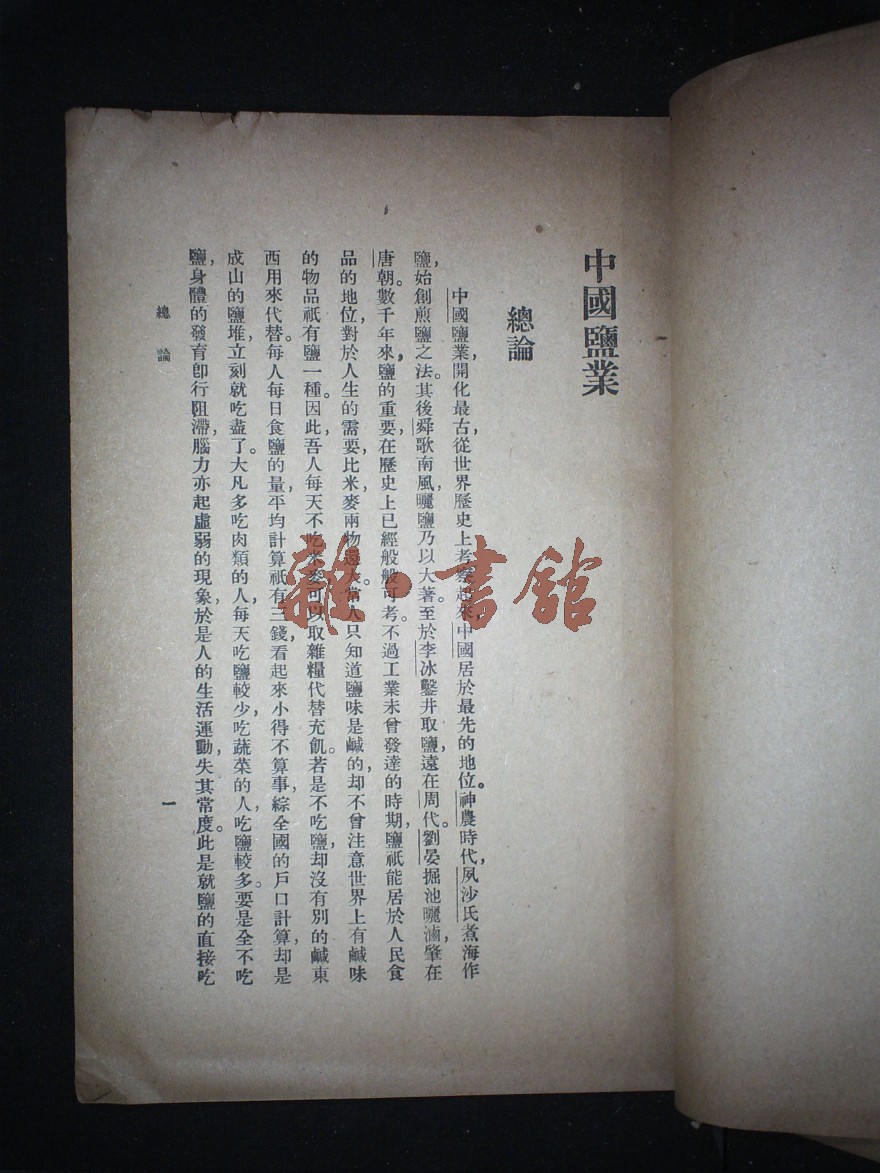 中國鹽業
總論
中國鹽業，開化最古，從世界歷史上考察起來，中國居於最先的地位。神農時代，夙沙氏煮海作
鹽，始創煎鹽之法。其後舜歌南風，曬鹽乃以大著。至於李冰鑿井取鹽，遠在周代。劉晏掘池曬滷，肇在
唐朝。數千年來，鹽的重要，在歷史上已經般般可考。不過工業未曾發達的時期，鹽祇能居於人民食
品的地位，對於人生的需要，比米麥兩物還大。當人只知道鹽味是鹹的，却不曾注意世界上有鹹味
的物品祇有鹽一種。因此，吾人每天不吃米麥，可以取雜糧代替充飢。若是不吃鹽，却沒有別的鹹東
西用來代替。每人每日食鹽的量，平均計算祇有三錢，看起來小得不算事，綜全國的戶口計算，却是
成山的鹽堆，立刻就吃盡了。大凡多吃肉類的人，每天吃鹽較少，吃蔬菜的人，吃鹽較多。要是全不吃
鹽，身體的發育即行阻滯，腦力亦起虛弱的現象，於是人的生活運動，失其常度。此是就鹽的直接吃
總論
一
雜·書館